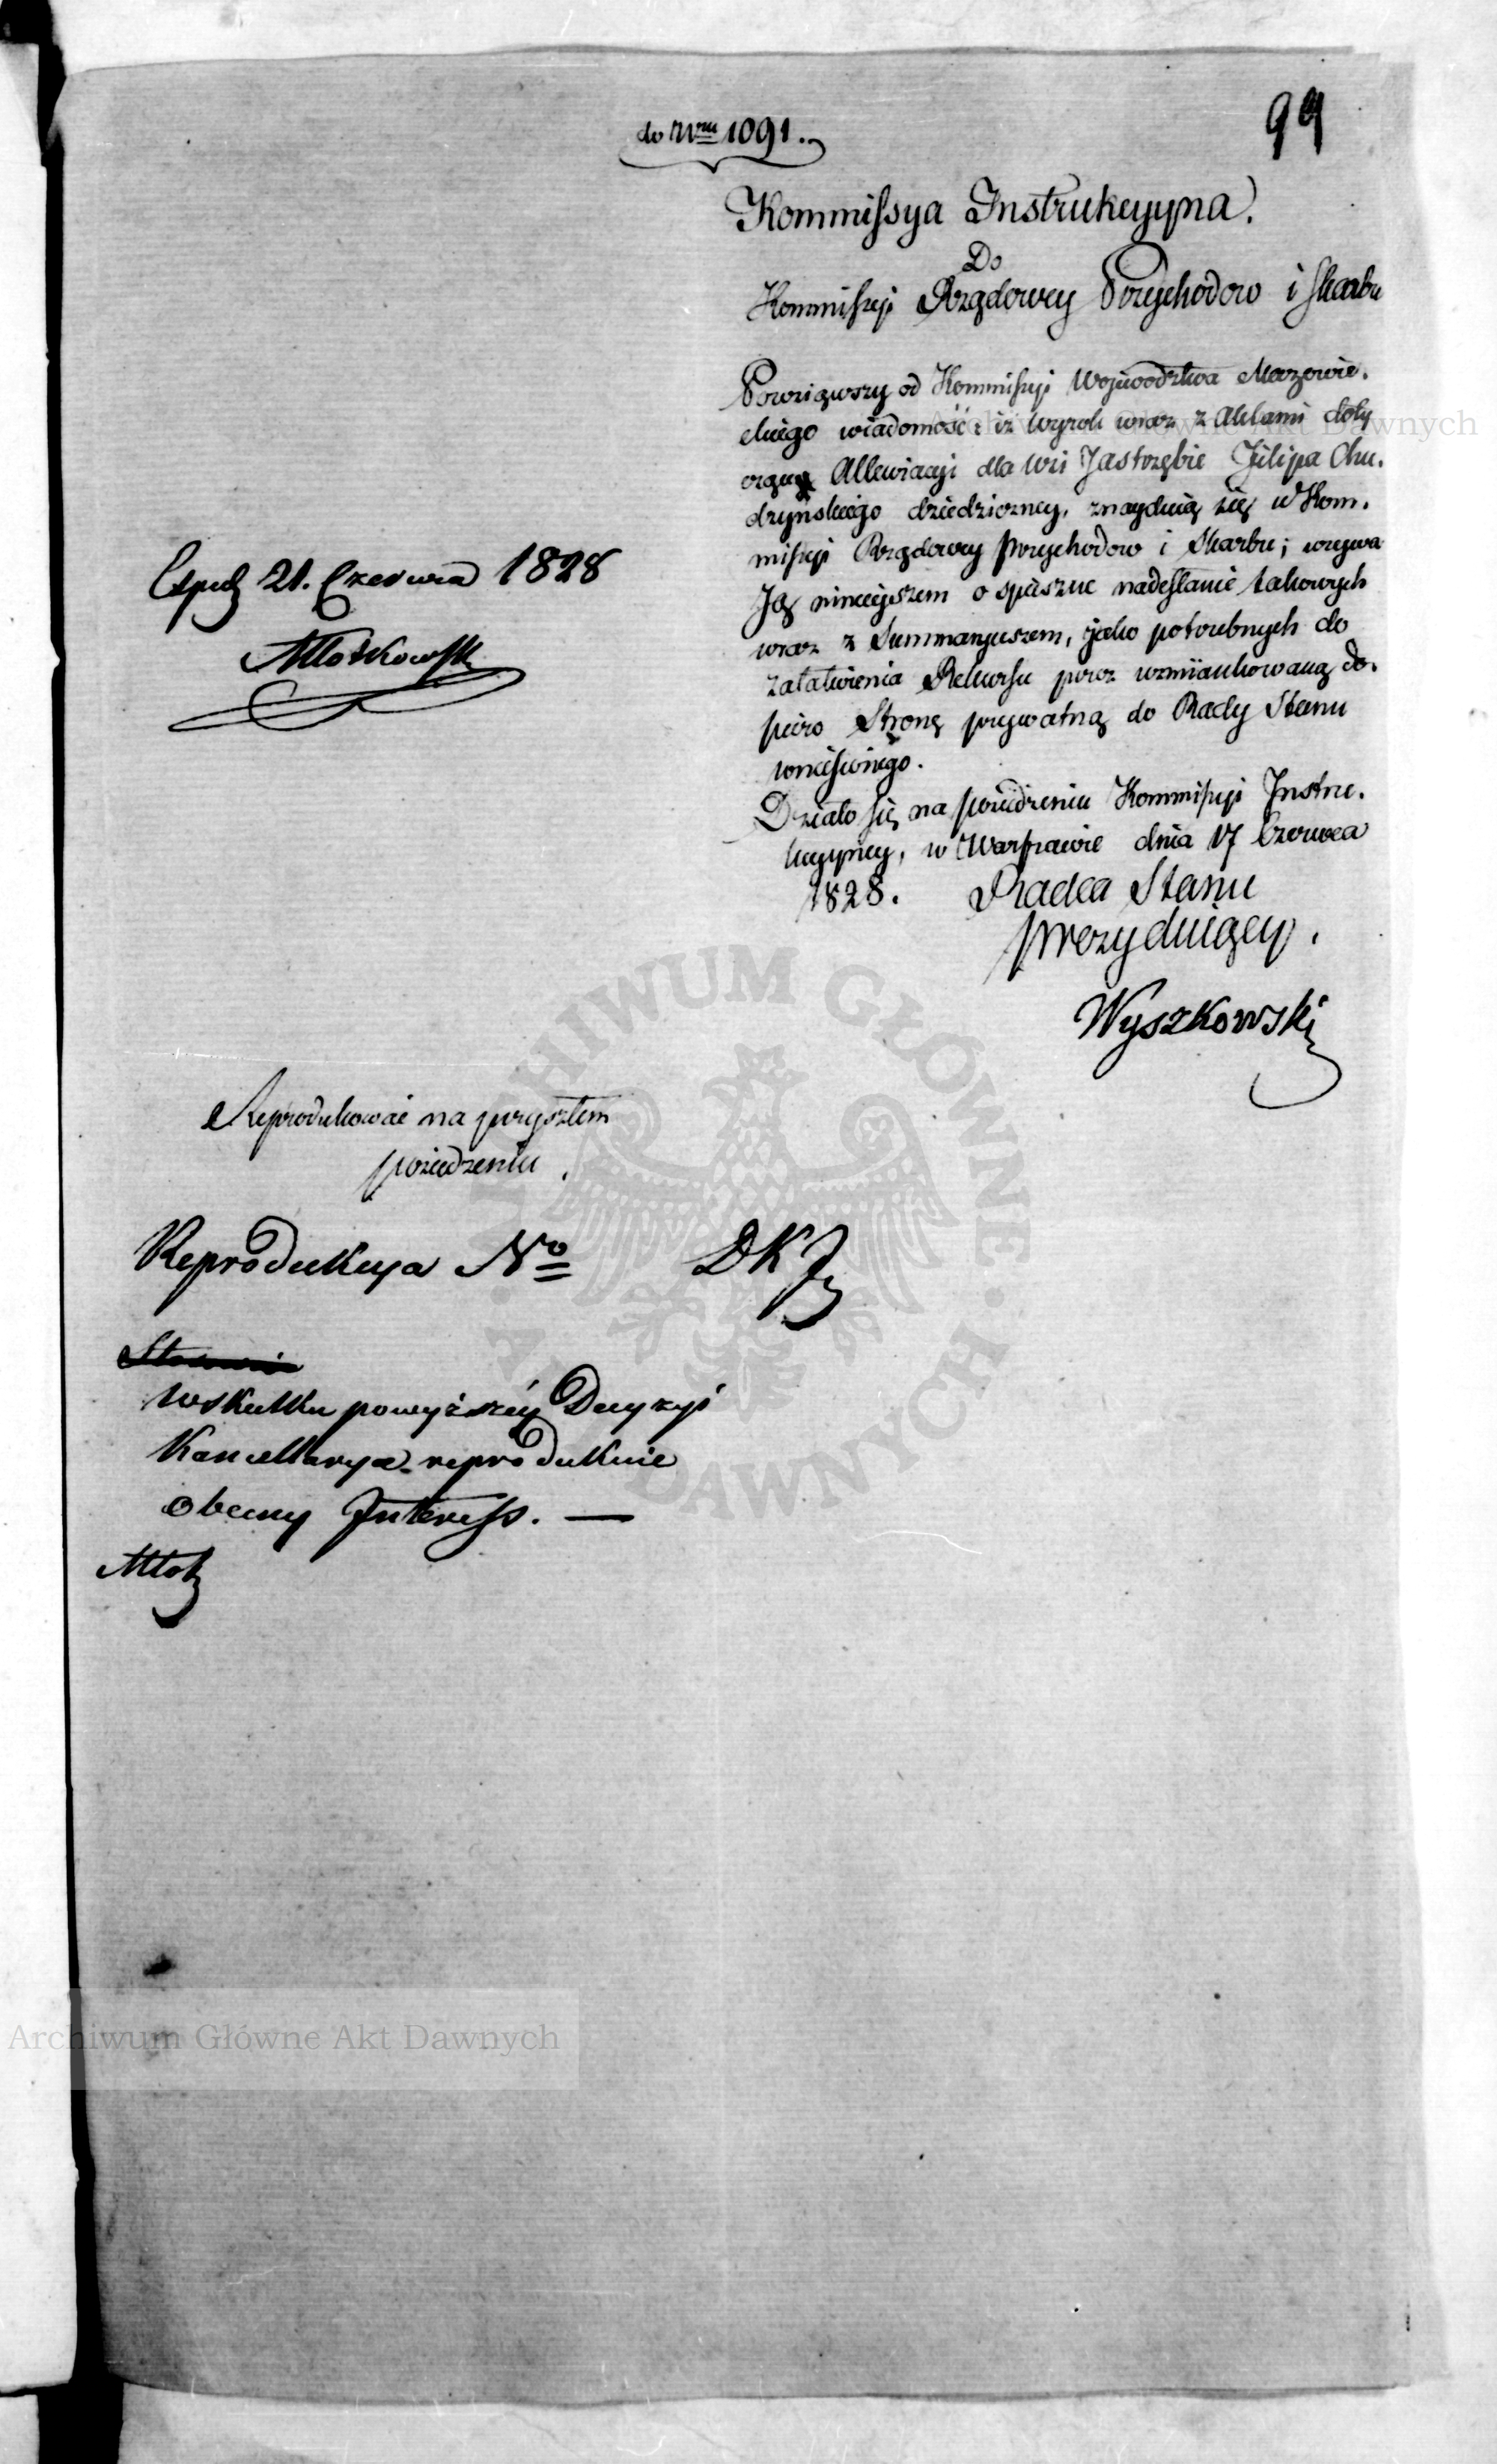 do Nru 1091.
99
Kommissya Instrukcyyna.
Do
Kommissyi Rządowey Przychodow i Skarbu
Powziąwszy od Kommissyi Wojewodztwa Mazowie-
ckiego wiadomość: iż Wyrok wraz z Aktami doty
czącey Allewiacyi dla Wsi Jastrzębie Filipa Chu-
dzyńskiego dziedziczney, znayduią się w Kom-
missyi Rządowey Przychodow i Skarbu; wzywa
Ją ninieyszem o spieszne nadesłanie takowych
wraz z Summaryuszem, jako potrzebnych do
załatwienia Rekursu przez wzmiankowaną do-
piero Stronę prywatną do Rady Stanu
wniesionego.
Działo się na posiedzeniu Kommissyi Instru-
kcyyney, w Warszawie dnia 17 Czerwca
1828. Radca Stanu
Prezyduiący.
Wyszkowski
Exped 21. Czerwca 1828
Młotkowski
Reprodukować na przyszłem
posiedzeniu.
Reprodukcya No DKJ
Wskutku powyższéy Decyzyi
Kancellarya reprodukuie
obecny Interess. —
Młotk
Archiwum Główne Akt Dawnych
ARCHIWUM GŁÓWNE AKT DAWNYCH
Archiwum Główne Akt Dawnych